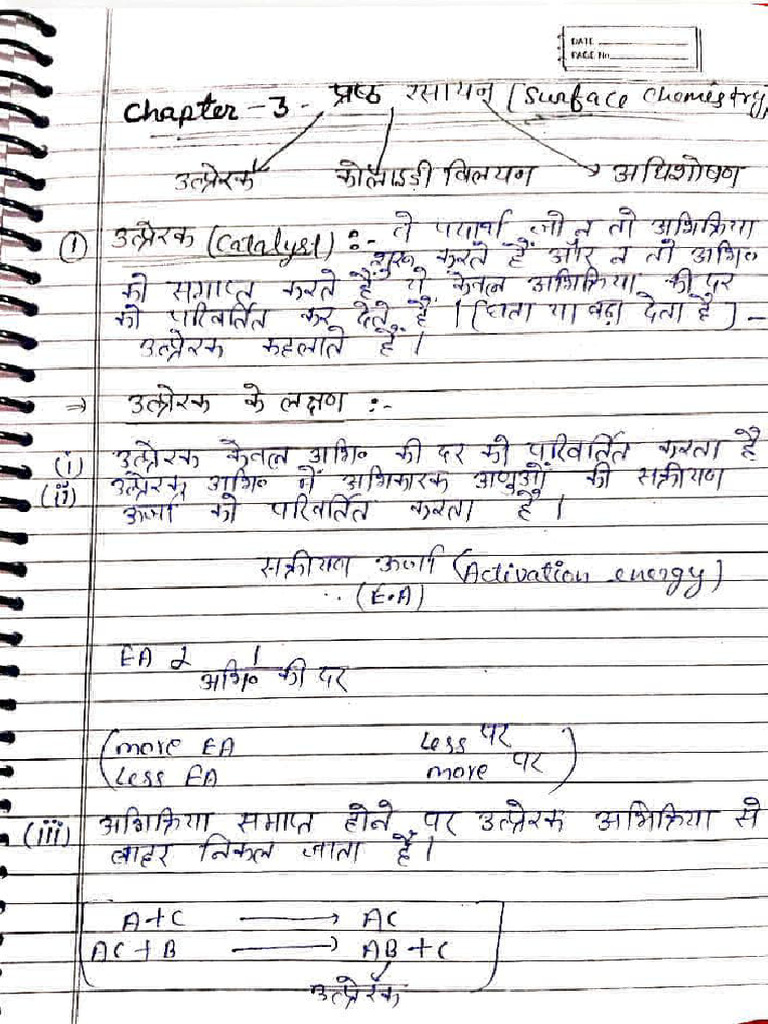 DATE
PAGE No
Chapter - 3 - प्रष्ठ रसायन (Surface Chemistry)
उत्प्रेरक कोलाइडी विलयन अधिशोषण
① उत्प्रेरक (Catalyst) :- वे पदार्थ जो न तो अभिक्रिया
शुरू करते हैं और न तो अभि०
को समाप्त करते हैं ये केवल अभिक्रिया की दर
को परिवर्तित कर देते हैं । (घटा या बढ़ा देता है) -
उत्प्रेरक कहलाते हैं ।
⇒ उत्प्रेरक के लक्षण :-
(i) उत्प्रेरक केवल अभि० की दर को परिवर्तित करता है
(ii) उत्प्रेरक अभि० में अभिकारक अणुओं की सक्रीयण
ऊर्जा को परिवर्तित करता है ।
सक्रीयण ऊर्जा (Activation energy)
(E.A)
EA 2 1
अभि० की दर
(more EA Less पर
Less EA more पर)
(iii) अभिक्रिया समाप्त होने पर उत्प्रेरक अभिक्रिया से
बाहर निकल जाता है ।
A+C → AC
AC+B → AB+C
उत्प्रेरक